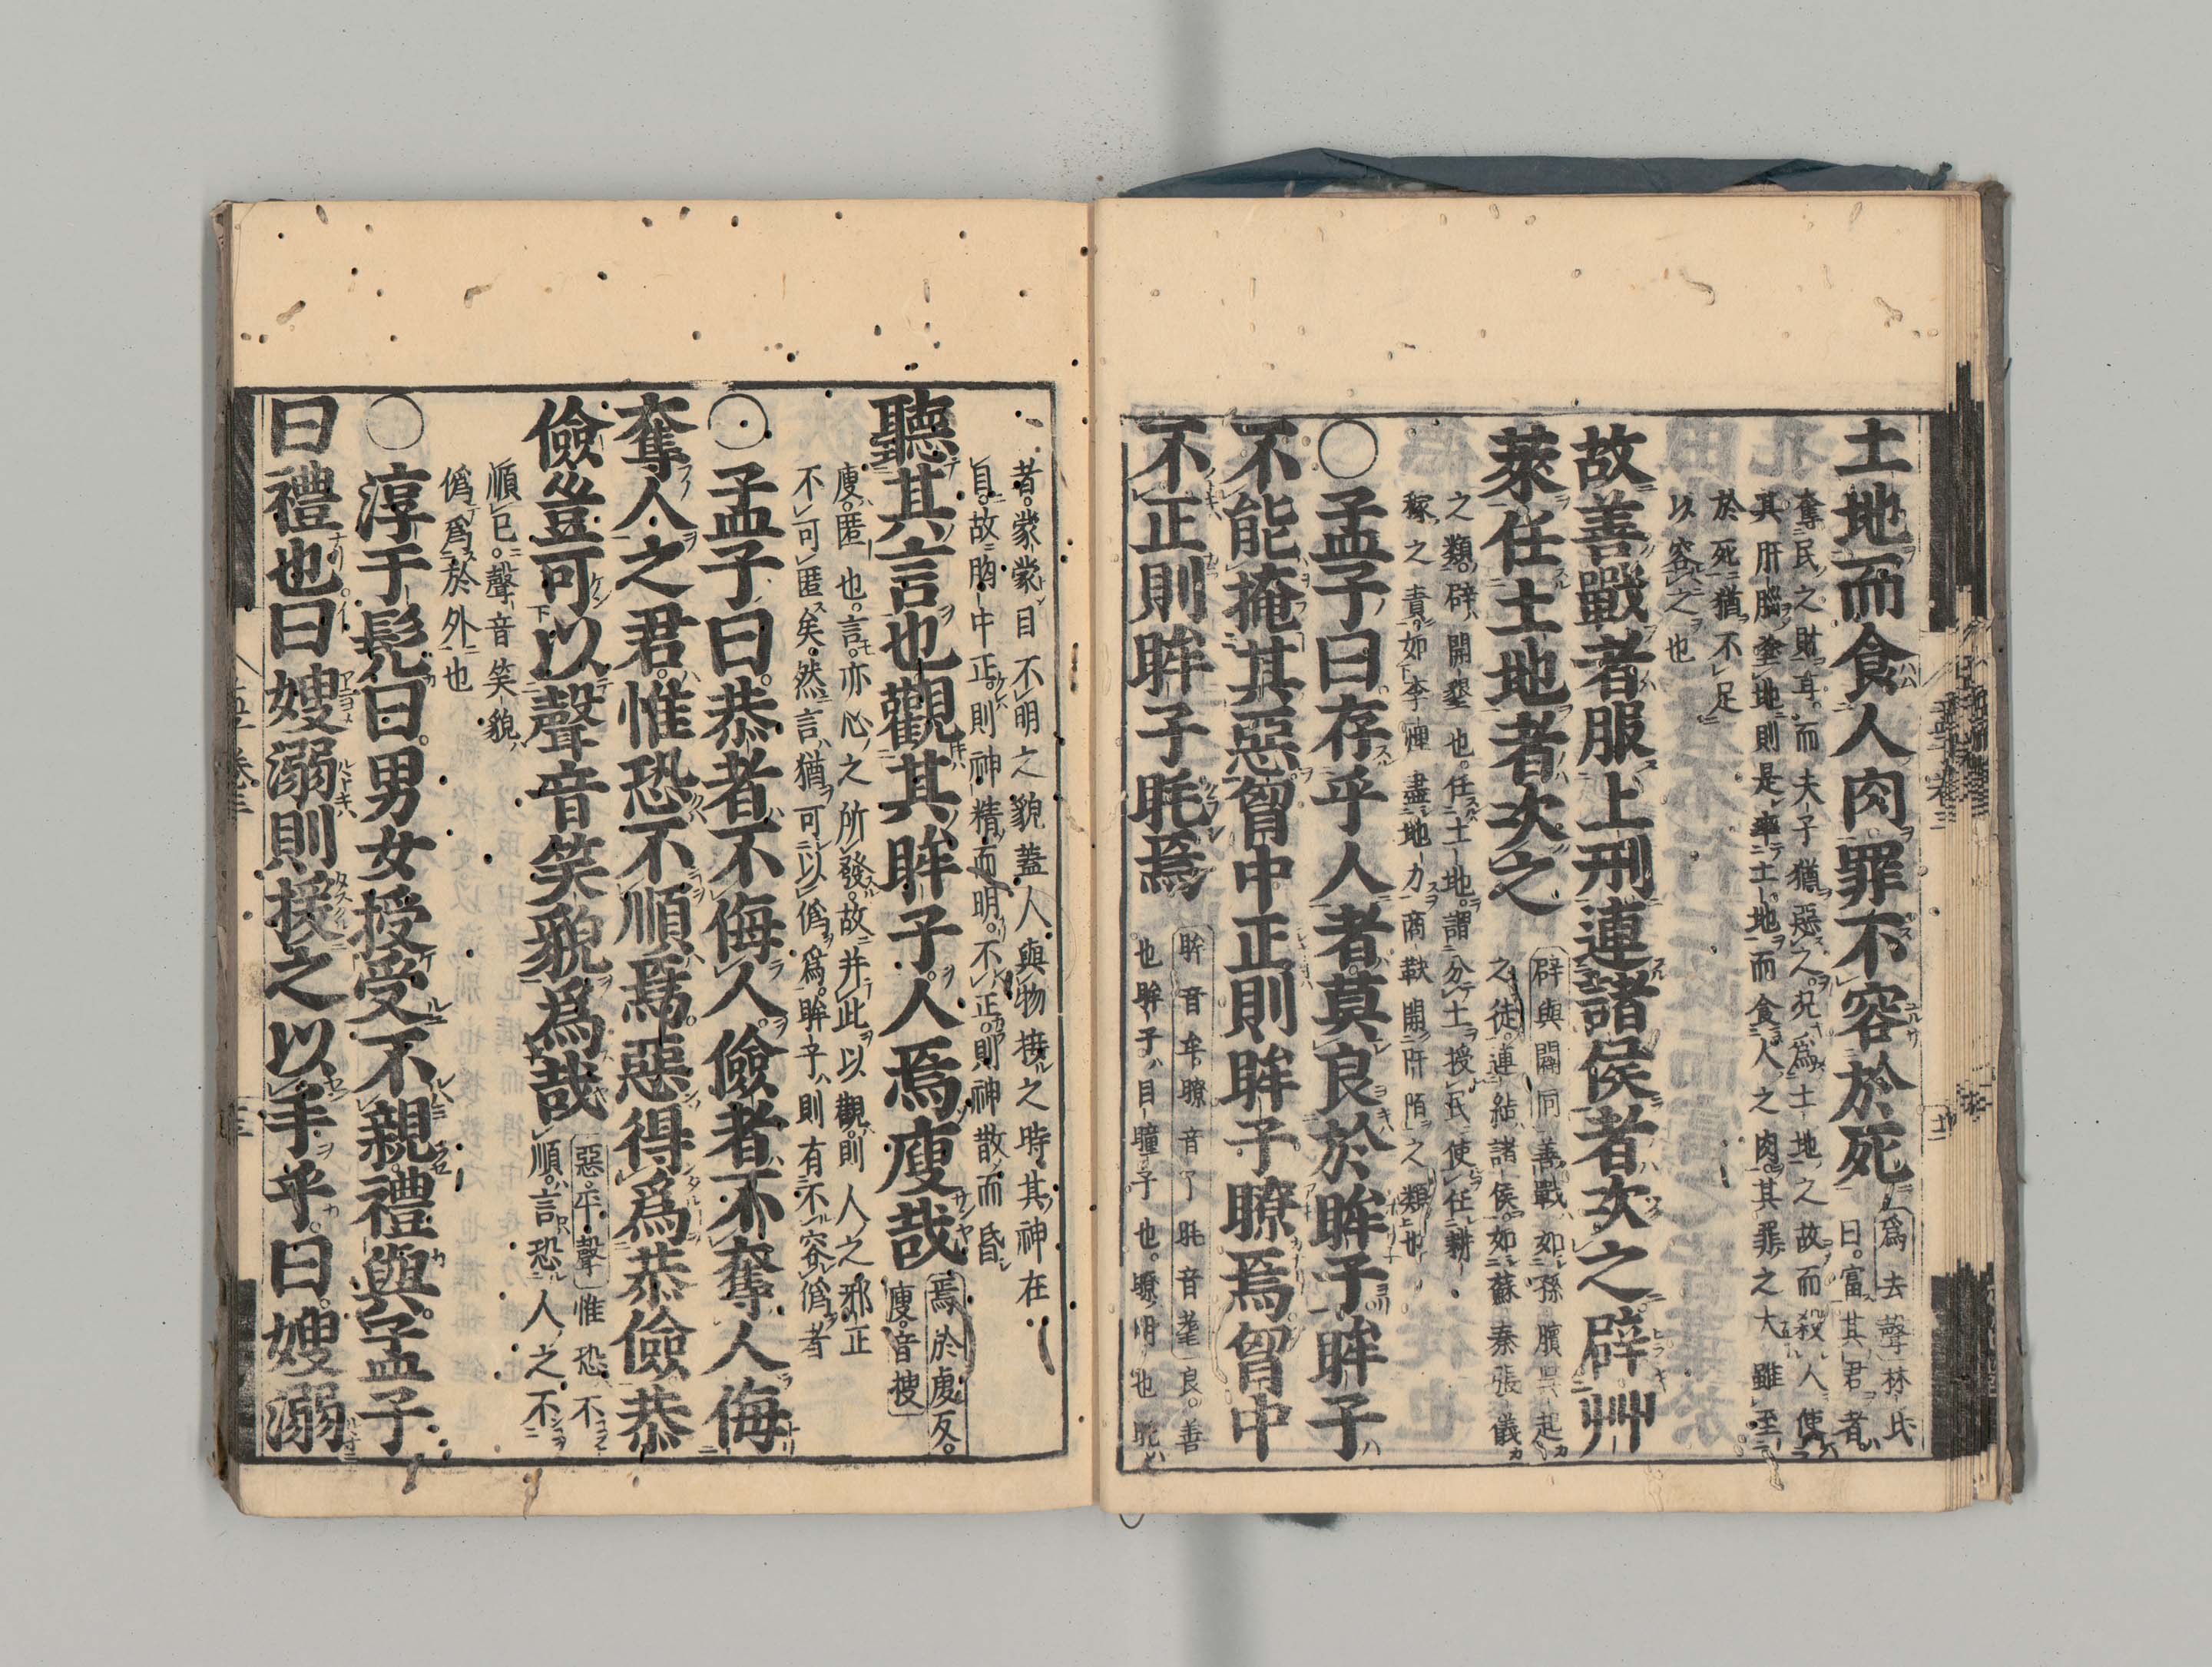 土地而食人肉罪不容於死 爲去聲林氏
曰富其君者
奪民之財耳而夫子猶惡之況爲土地之故而殺人使
其肝腦塗地則是率土地而食人之肉其罪之大雖至
於死猶不足
以容之也
故善戰者服上刑連諸侯者次之辟艸
萊任土地者次之 辟與闢同善戰如孫臏吳起
之徒連結諸侯如蘇秦張儀
之類辟開墾也任土地謂分土授民使任耕
稼之責如李悝盡地力商鞅開阡陌之類也
○孟子曰存乎人者莫良於眸子眸子
不能掩其惡胷中正則眸子瞭焉胷中
不正則眸子眊焉 眸音牟瞭音了眊音耄良善
也眸子目瞳子也瞭明也眊
者蒙蒙目不明之貌蓋人與物接之時其神在
目故胸中正則神精而明不正則神散而昏
聽其言也觀其眸子人焉廋哉 焉於虔反
廋音搜
廋匿也言亦心之所發故并此以觀則人之邪正
不可匿矣然言猶可以僞爲眸子則有不容僞者
○孟子曰恭者不侮人儉者不奪人侮
奪人之君惟恐不順焉惡得爲恭儉恭
儉豈可以聲音笑貌爲哉 惡平聲惟恐不
順言恐人之不
順已聲音笑貌
僞爲於外也
○淳于髡曰男女授受不親禮與孟子
曰禮也曰嫂溺則援之以手乎曰嫂溺